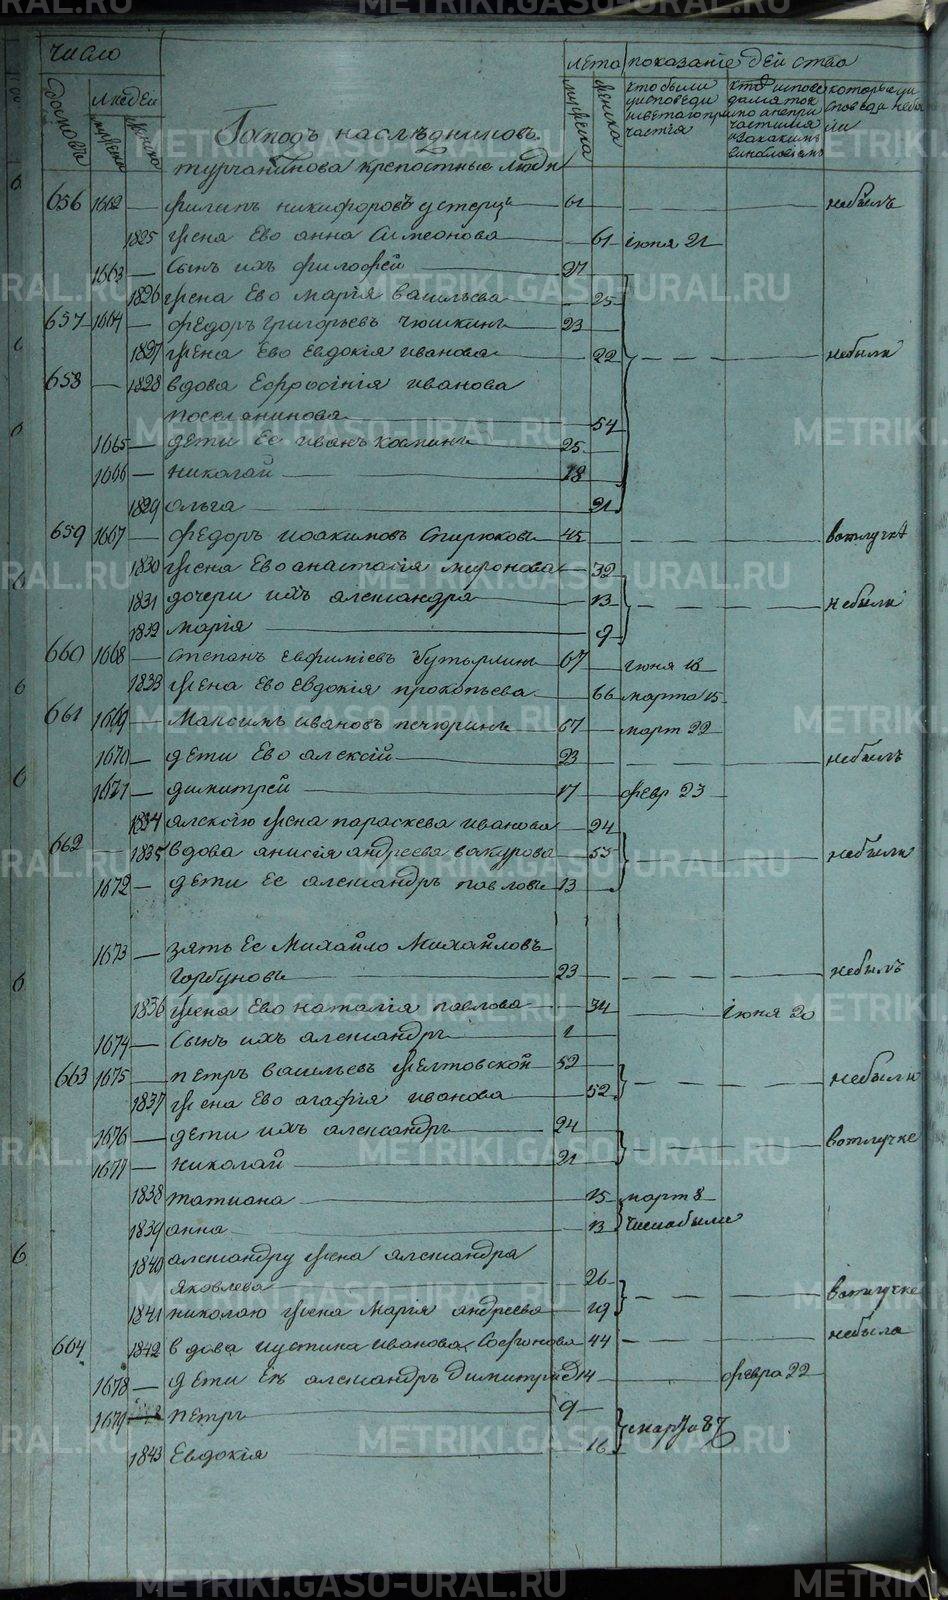 число лета показание действа
домовъ людей мужеска женска мужеска женска
кто были у исповеди и светаго причастiя
Господъ наследниковъ
турчанинова крепостные люди
656 1662 — филипъ никифоровъ устерцъ 61 небылъ
1825 жена Ево анна Симеонова 61 iюня 21
1663 — Сынъ ихъ филофей 27
1826 жена Ево марiя васильева 25
657 1664 — федоръ григорьевъ чюшкинъ 23
1827 жена Ево Евдокiя иванова 22 небыли
658 — 1828 вдова Ефросiнiя иванова
поселанинова 54
1665 — дети Ее иванъ козминъ 25
1666 — николай 18
1829 ольга 21
659 1667 — федоръ иоакимовъ Спирюковъ 45 вотлучке
1830 жена Ево анастасiя миронова 32
1831 дочери ихъ александра 13 небыли
1832 марiя 9
660 1668 — Степанъ Евфимiевъ бутырлинъ 67 iюня 16
1833 жена Ево Евдокiя прокопьева 66 марта 15
661 1669 — Максимъ ивановъ печюринъ 67 март 22
1670 — дети Ево алексiй 23 небылъ
1671 — димитрей 17 февр 23
1834 алексiю жена параскева иванова 24
662 — 1835 вдова анисiя андреева вакурова 55 небыли
1672 — дети Ее александръ павловъ 13
1673 — зять Ее Михайло Михайловъ
горбуновъ 23 небылъ
1836 жена Ево наталiя павлова 34 iюня 20
1674 — Сынъ ихъ александръ 1
663 1675 — петръ васильевъ желтовской 52 небыли
1837 жена Ево агафiя иванова 52
1676 — дети ихъ александръ 24 вотлучке
1677 — николай 21
1838 татиана 15 март 8
1839 анна 13
1840 александру жена александра
яковлева 26 вотлучке
1841 николаю жена Марiя андреева 19
664 1842 вдова иустина иванова Софронова 44 небыла
1678 — дети Ея александръ димитриевъ 14 февра 22
1679 петръ 9
1843 Евдокiя 16
METRIKI.GASO-URAL.RU